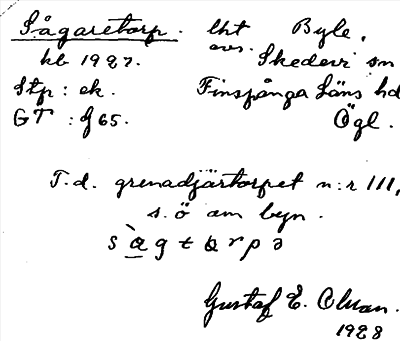 Sågaretorp. lht Byle,
avs. Skedevi sn
kb 1927.
Stp: ek. Finspånga läns hd
GT : f 65. Ögl.
T. d. grenadjärtorpet n:r 111,
s. ö om byn.
s à g t ɷ r p ə
Gustaf E. Olsson.
1928